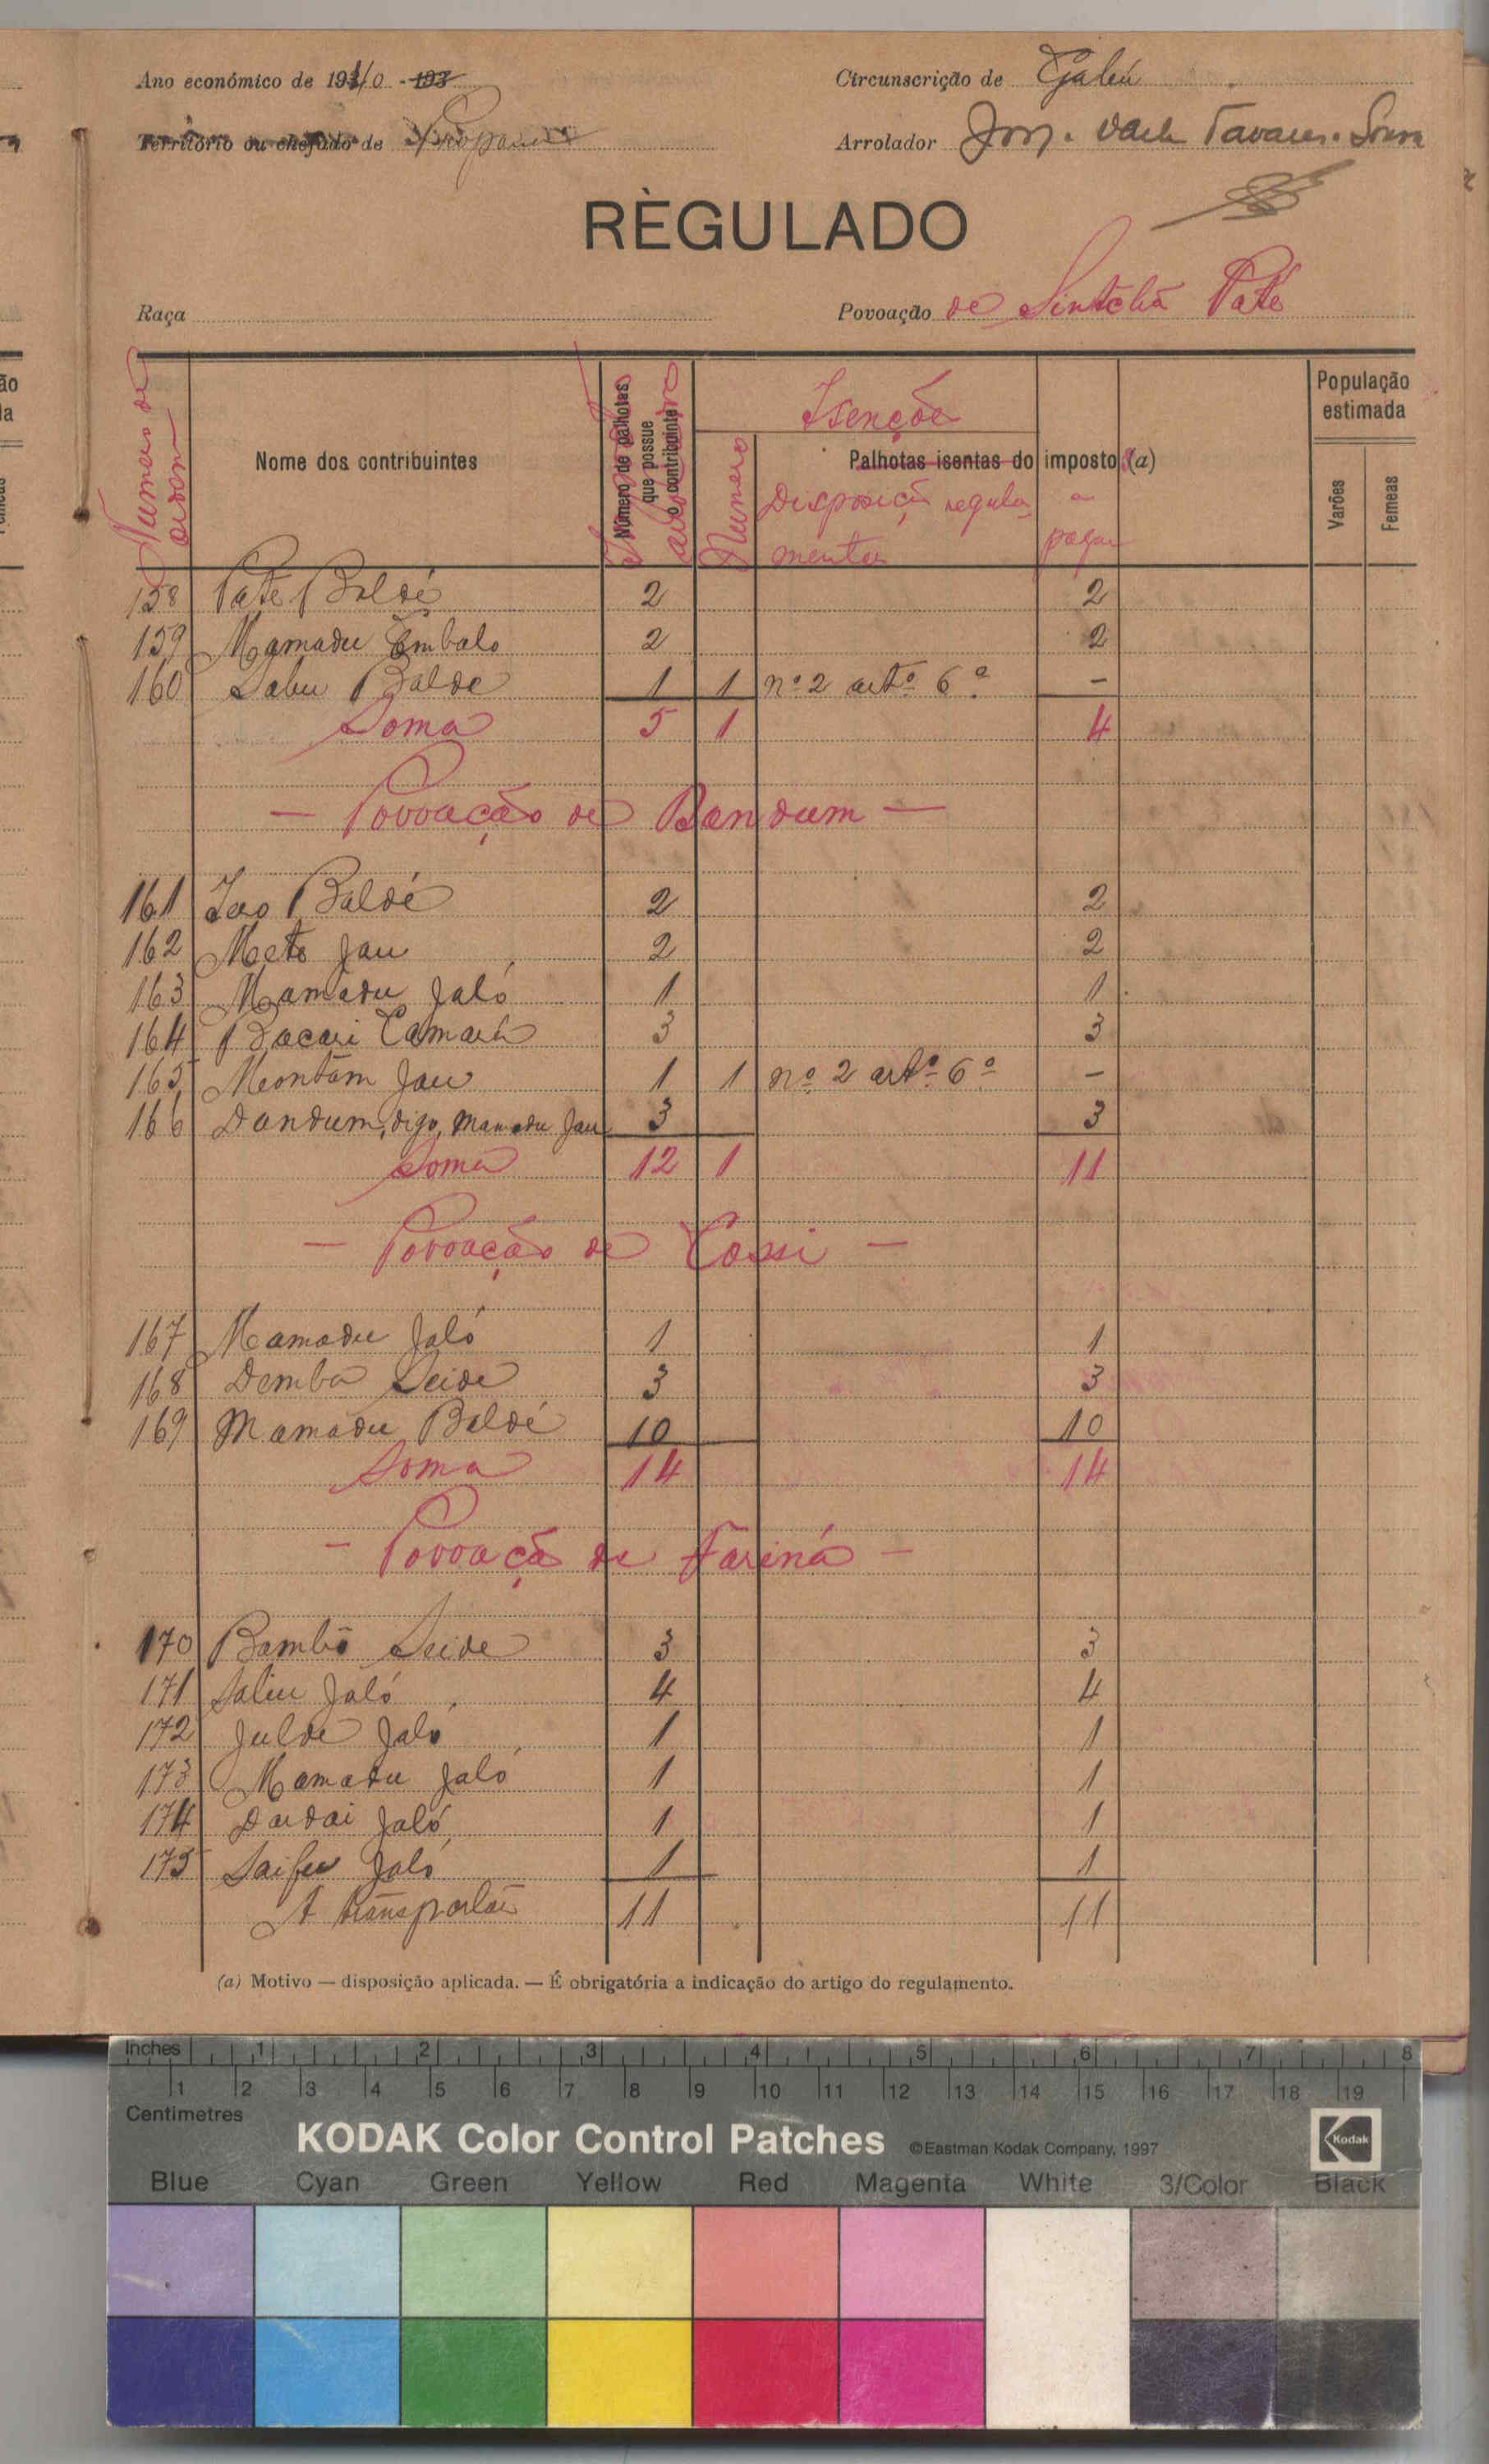 Ano económico de 1940 - 193
Circunscrição de Gabú
Território ou chefado de Propana
Arrolador Tavares Sousa
RÈGULADO
Raça
Povoação de Sintchã Paté
Numero de ordem
Nome dos contribuintes
Número de palhotas que possue o contribuinte
Numero
Isenções
Palhotas isentas do imposto (a)
Disposição regula-
mentar
a
pagar
População
estimada
Varões
Femeas
158 Paté Baldé 2 2
159 Mamadu Embalo 2 2
160 Sabu Balde 1 1 nº 2 artº 6º -
Soma 5 1 4
— Povoação de Bandum —
161 Iero Baldé 2 2
162 Meta Jau 2 2
163 Mamadu Jaló 1 1
164 Bacari Camará 3 3
165 Montám Jau 1 1 nº 2 artº 6º -
166 Dandum, digo, Mamadu Jau 3 3
Soma 12 1 11
— Povoação de Cossi —
167 Mamadu Jaló 1 1
168 Demba Seide 3 3
169 Mamadu Baldé 10 10
Soma 14 14
- Povoação de Fariná -
170 Bambô Seide 3 3
171 Saliu Jaló 4 4
172 Juldé Jaló 1 1
173 Mamadu Jaló 1 1
174 Daidai Jaló 1 1
175 Saifu Jaló 1 1
A transportar 11 11
(a) Motivo — disposição aplicada. — É obrigatória a indicação do artigo do regulamento.
Inches 1 2 3 4 5 6 7 8
1 2 3 4 5 6 7 8 9 10 11 12 13 14 15 16 17 18 19
Centimetres
KODAK Color Control Patches ©Eastman Kodak Company, 1997 Kodak
Blue Cyan Green Yellow Red Magenta White 3/Color Black